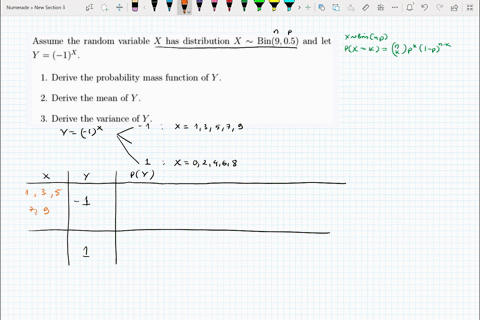 Numerade » New Section 3
n p
Assume the random variable X has distribution X ∼ Bin(9, 0.5) and let
Y = (−1)^X.
1. Derive the probability mass function of Y.
2. Derive the mean of Y.
3. Derive the variance of Y.
X~Bin(n,p)
P(X=k) = (n k) p^k (1-p)^n-k
Y = (-1)^x
-1 : X = 1, 3, 5, 7, 9
1 : X = 0, 2, 4, 6, 8
X Y P(Y)
1, 3, 5
7, 9
-1
1